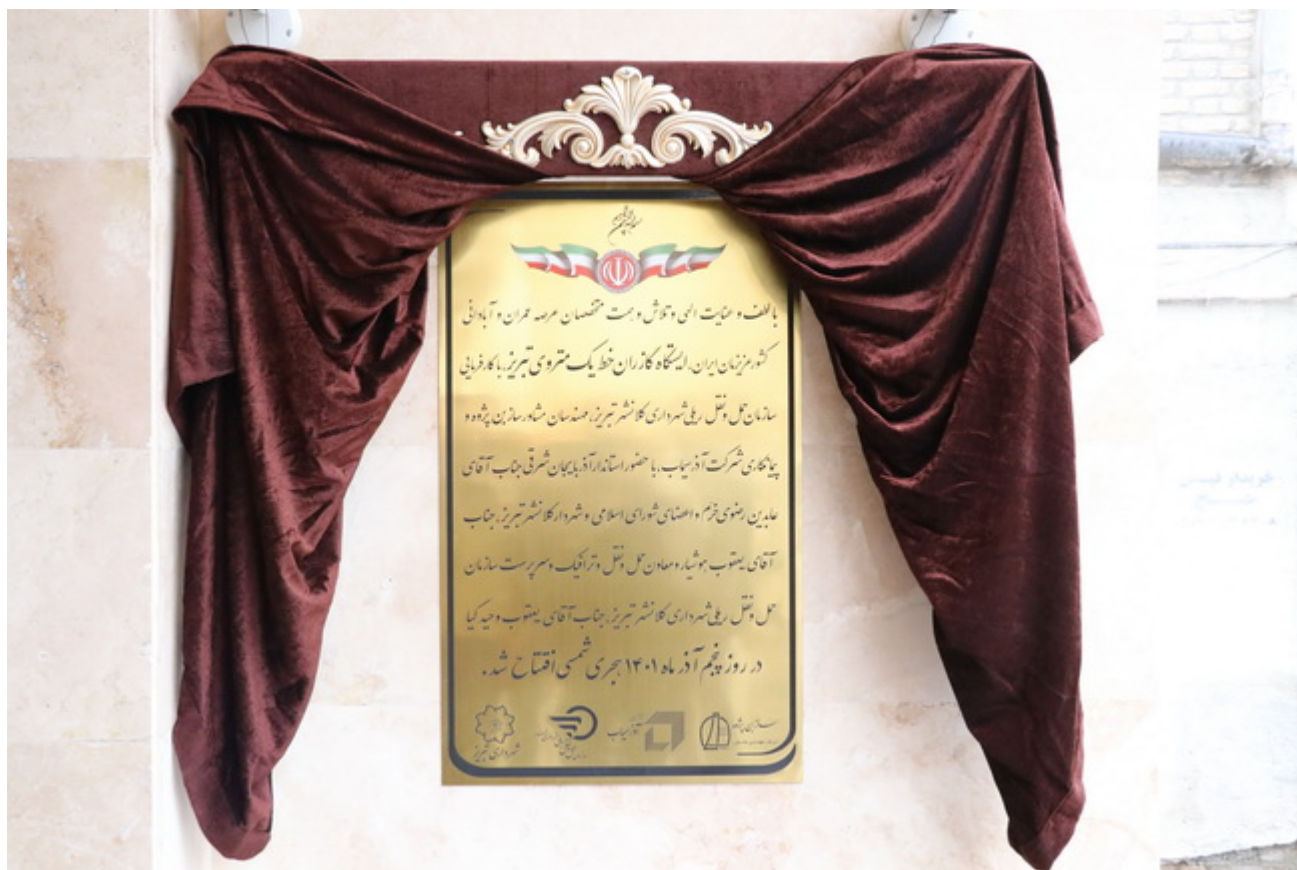 بسم الله الرحمن الرحیم
با لطف و عنایت الهی و تلاش و همت متخصصان عرصه عمران و آبادانی
کشور عزیزمان ایران، ایستگاه کازران خط یک متروی تبریز، با کارفرمایی
سازمان حمل و نقل ریلی شهرداری کلانشهر تبریز، مهندسان مشاور سازبن پژوه و
پیمانکاری شرکت آذرسیاب، با حضور استاندار آذربایجان شرقی جناب آقای
عابدین رضوی خرم و اعضای شورای اسلامی و شهردار کلانشهر تبریز، جناب
آقای یعقوب هوشیار و معاون حمل و نقل و ترافیک و سرپرست سازمان
حمل و نقل ریلی شهرداری کلانشهر تبریز، جناب آقای یعقوب وحیدکیا
در روز پنجم آذر ماه ۱۴۰۱ هجری شمسی افتتاح شد.
سازبن پژوه
آذرسیاب
شهرداری تبریز